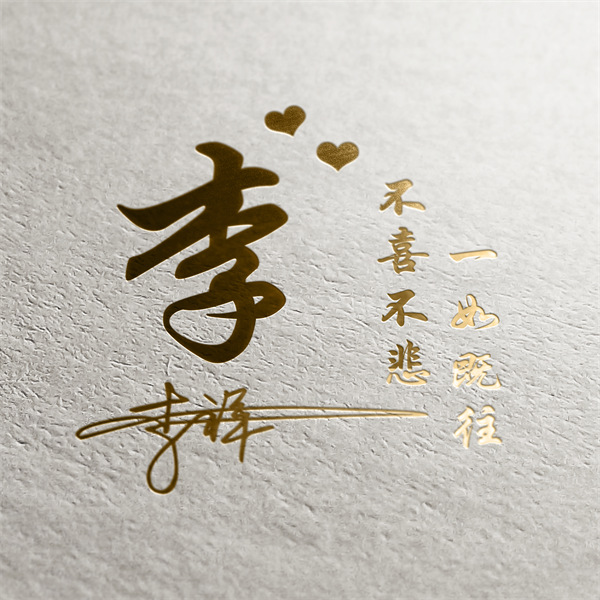 李
不喜不悲
一如既往
李祥